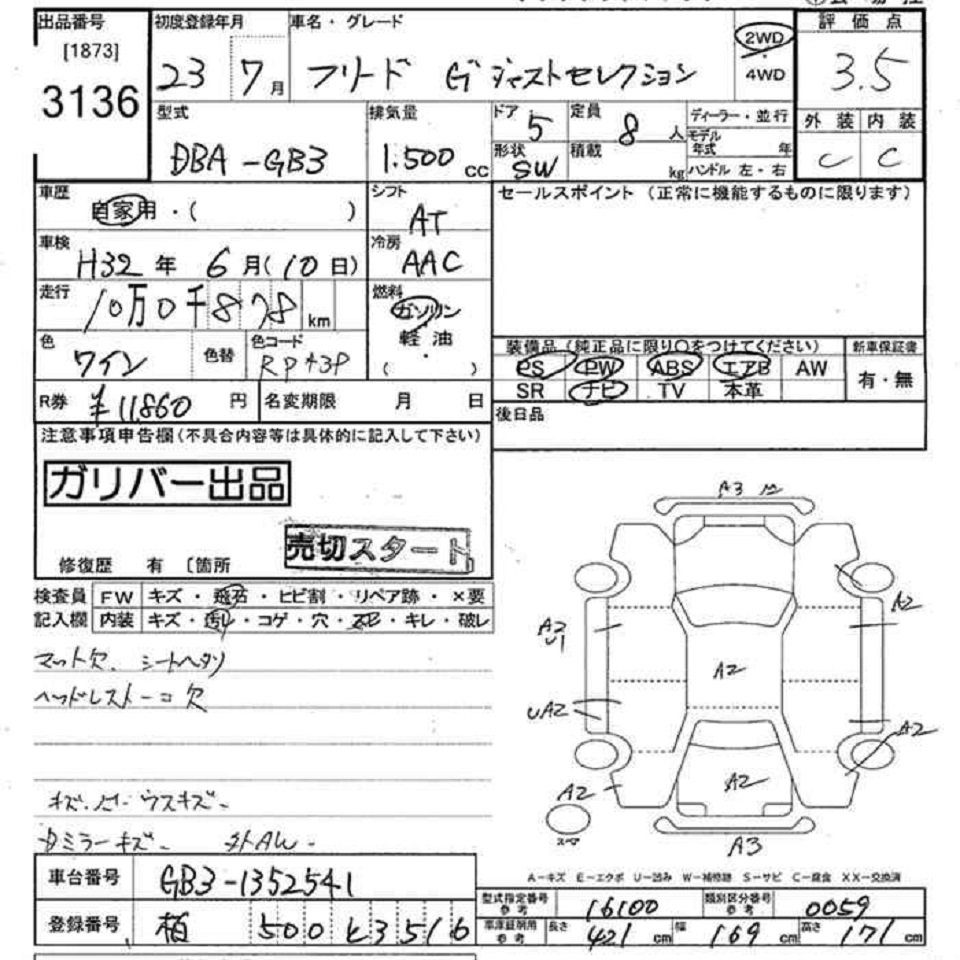 出品番号 初度登録年月 車名・グレード 評価点
[1873]
3136 23 7月 フリード G ジャストセレクション 2WD 4WD 3.5
型式 排気量 ドア 5 定員 8人 ディーラー・並行 外装 内装
DBA-GB3 1.500 cc 形状 SW 積載 kg モデル年式 年 ハンドル 左・右 C C
車歴 自家用・( ) シフト AT セールスポイント (正常に機能するものに限ります)
車検 H32年 6月(10日) 冷房 AAC
走行 10万0千878km 燃料 ガソリン
軽油
( )
色 ワイン 色替 色コード 装備品 (純正品に限り○をつけてください) 新車保証書
PS PW ABS エアB AW 有・無
SR ナビ TV 本革
R券 ¥11860円 名変期限 月 日 後日品
注意事項申告欄(不具合内容等は具体的に記入して下さい)
ガリバー出品
売切スタート
修復歴 有 〔箇所
検査員 FW キズ・飛石・ヒビ割・リペア跡・×要
記入欄 内装 キズ・汚レ・コゲ・穴・・キレ・破レ
マット欠. シートヘタリ
ヘッドレスト一コ欠
キズ. ウスキズ.
ミラーキズ. 外AW.
A3
A2
A2
U1
A2
UA2
A2
A2
A2
A3
スペア
A-キズ E-エクボ U-凹み W-補修跡 S-サビ C-腐食 XX-交換済
車台番号 GB3-1352541
型式指定番号 参考 16100 類別区分番号 参考 0059
登録番号 柏 500 と 3516
車庫証明用 参考 長さ 421cm 幅 169cm 高さ 171cm